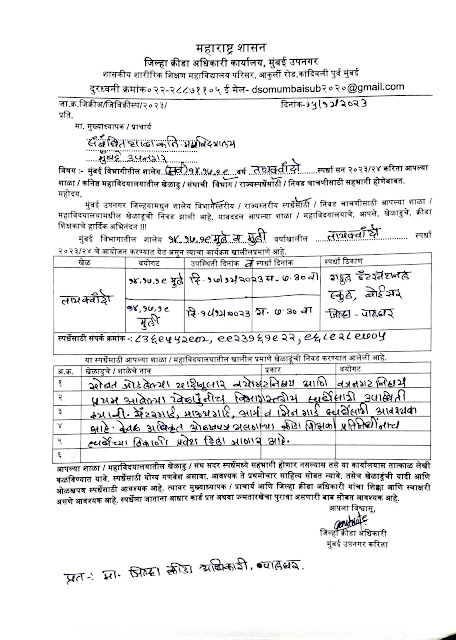 महाराष्ट्र शासन
जिल्हा क्रीडा अधिकारी कार्यालय, मुंबई उपनगर
शासकीय शारीरिक शिक्षण महाविद्यालय परिसर, आकुर्ली रोड,कांदिवली पुर्व मुंबई
दुरध्वनी क्रमांक०२२-२८८७११०५ ई मेल- dsomumbaisub२०२०@gmail.com
जा.क्र.जिक्रीअ/जिविक्रीस्प/२०२३/ दिनांक-१५/१२/२०२३
प्रति,
मा. मुख्याध्यापक / प्राचार्य
संबंधित शाळा/कनि महाविद्यालय
मुंबई उपनगर
विषय :- मुंबई विभागीतील शालेय १४,१७,१९ वर्षे तायक्वांदो स्पर्धा सन २०२३/२४ करिता आपल्या
शाळा / कनिष्ठ महाविद्यालयातील खेळाडु / संघाची विभाग / राज्यस्पर्धेसाठी / निवड चाचणीसाठी सहभागी होणेबाबत.
महोदय,
मुंबई उपनगर जिल्हयामधून शालेय विभागीस्तरीय / राज्यस्तरीय स्पर्धेसाठी / निवड चाचणीसाठी आपल्या शाळा /
महाविद्यालयामधील खेळाडुंची निवड झाली आहे. याबददल आपल्या शाळा / महाविद्यालयाचे, आपले, खेळाडुचे, क्रीडा
शिक्षकाचे हार्दिक अभिनंदन !!!
मुंबई विभागीतील शालेय १४,१७,१९ मुले व मुली वर्षाखालील तायक्वांदो स्पर्धा
२०२३/२४ चे आयोजन करण्यात येत असून त्याचा कार्यक्रम खालीलप्रमाणे आहे.
खेळ वयोगट उपस्थिती दिनांक व स्पर्धा दिनांक स्पर्धा ठिकाण
तायक्वांदो १४,१७,१९ मुले दि. १७/१२/२०२३ स. ७.३० वा
१४,१७,१९ मुली दि. १८/१२/२०२३ स. ७.३० वा
स्कुल, बोईसर
जिल्हा - पालघर
स्पर्धेसाठी संपर्क क्रमांक :-
या स्पर्धेसाठी आपल्या शाळा / महाविद्यालयातील खालील प्रमाणे खेळाडुंची निवड करण्यात आलेली आहे.
अ.क्र. खेळाडुचे / शाळेचे नाव प्रकार वयोगट
१ सोबत जोडलेल्या यादीनुसार वयोगटनिहाय आणि वजनगट निहाय
२ प्रथम आलेल्या खेळाडूंनीच विभागस्तरीय स्पर्धेसाठी उपस्थिती
३ आवश्यक
४ आहे. केवळ अधिकृत ओळखपत्र असलेल्या क्रीडा शिक्षक प्रतिनिधींनाच
५ स्पर्धेच्या ठिकाणी प्रवेश दिला जाणार आहे.
६
आपल्या शाळा / महाविद्यालयातील खेळाडु / संघ सदर स्पर्धेमध्ये सहभागी होणार नसल्यास तसे या कार्यालयास तात्काळ लेखी
कळविण्यात यावे. स्पर्धेसाठी योग्य गणवेश असावा. आवश्यक ते प्रथमोचार साहित्य सोबत त्यावे. तसेच खेळाडुची यादी आणि
ओळखपत्र स्पर्धेसाठी आवश्यक आहे. त्यावर मुख्याध्यापक / प्राचार्य आणि जिल्हा क्रीडा अधिकारी यांचा शिक्का आणि स्वाक्षरी
असणे आवश्यक आहे. स्पर्धेला जाताना आधार कार्ड प्रत अथवा जन्मतारखेचा पुरावा असणारी बाब सोबत आवश्यक आहे.
आपला विश्वासू,
जिल्हा क्रीडा अधिकारी
मुंबई उपनगर करिता
प्रत-: मा. जिल्हा क्रीडा अधिकारी, पालघर.